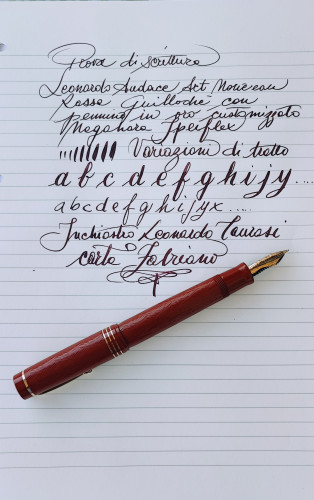 Prova di scrittura
Leonardo Audace Art Nouveau
Rossa Guilloché con
pennino in oro customizzato
Nagahara Sperflex
Variazioni di tratto
a b c d e f g h i j y....
a b c d e f g h i j y x....
Inchiostro Leonardo Taurasi
carta Fabriano